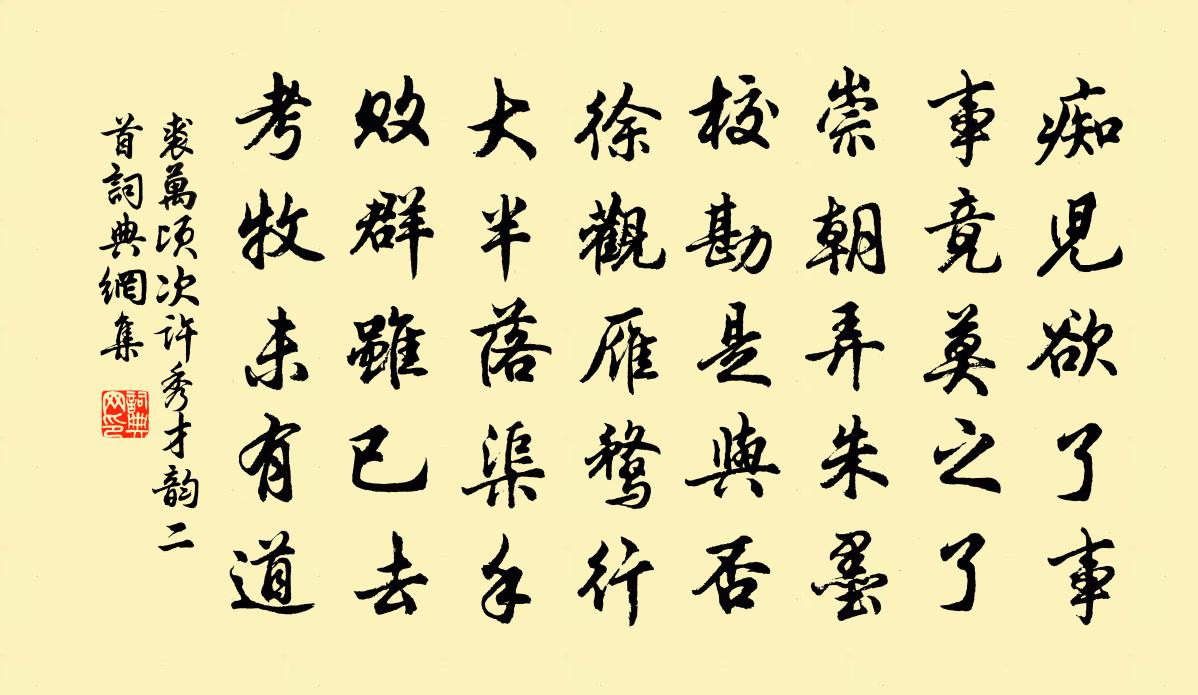 痴児欲了事
事竟莫之了
崇朝弄朱墨
校勘是與否
徐觀雁鶩行
大半落渠手
敗群雖已去
考牧未有道
裘萬頃次許秀才韵二
首詞典網集
詞典
网印